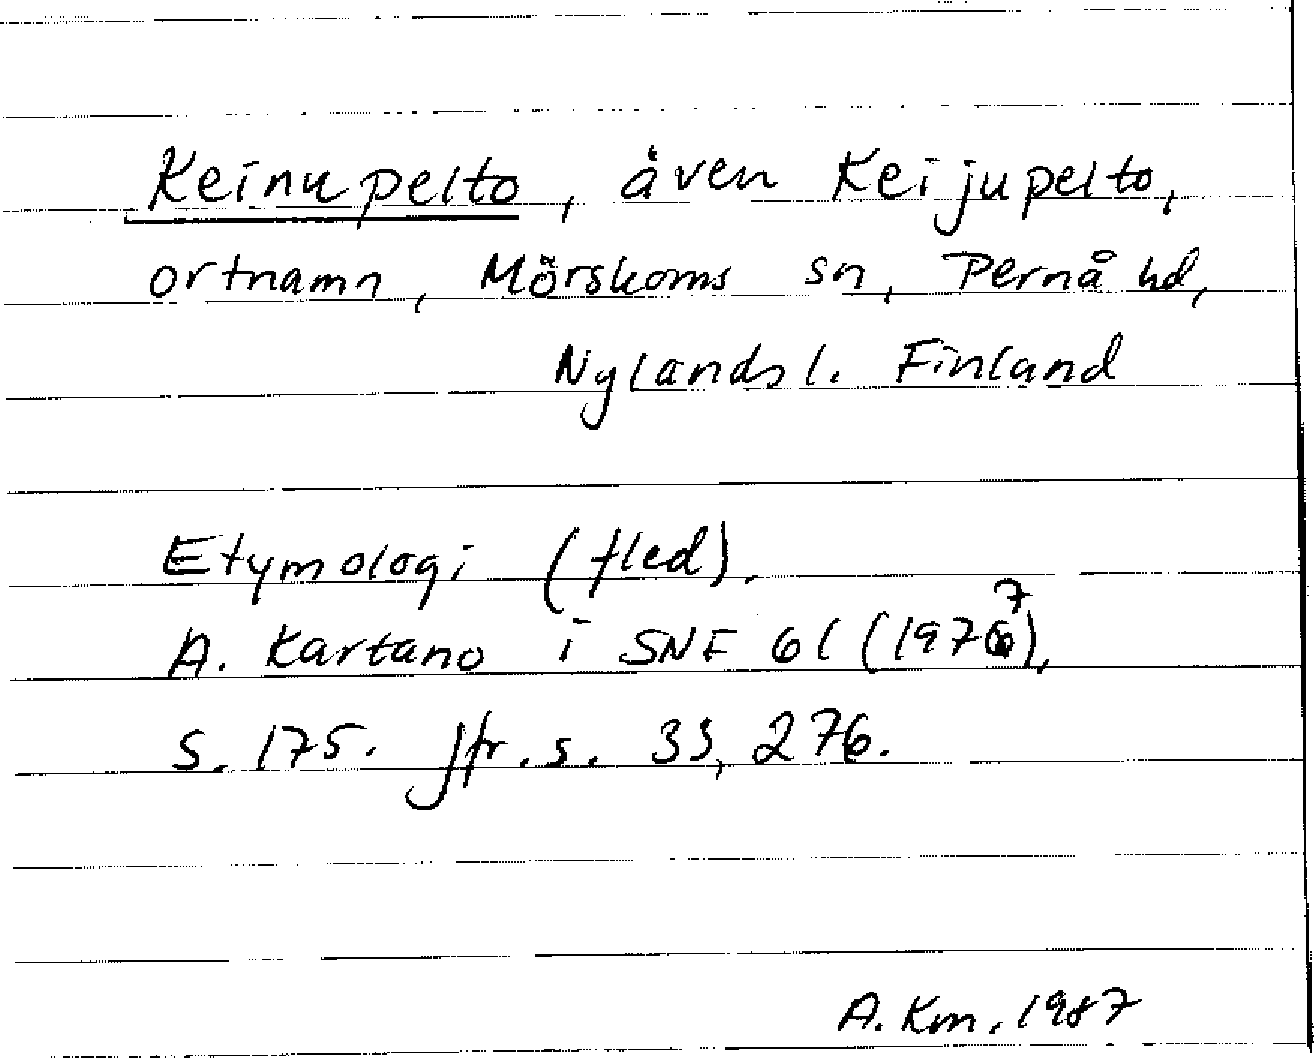 Keinupelto, även Keijupelto,
ortnamn, Mörskoms sn, Pernå hd,
Nylands l. Finland
Etymologi (fled).
A. Kartano i SNF 61 (1977),
s. 175. Jfr. s. 33, 276.
A. Km. 1987